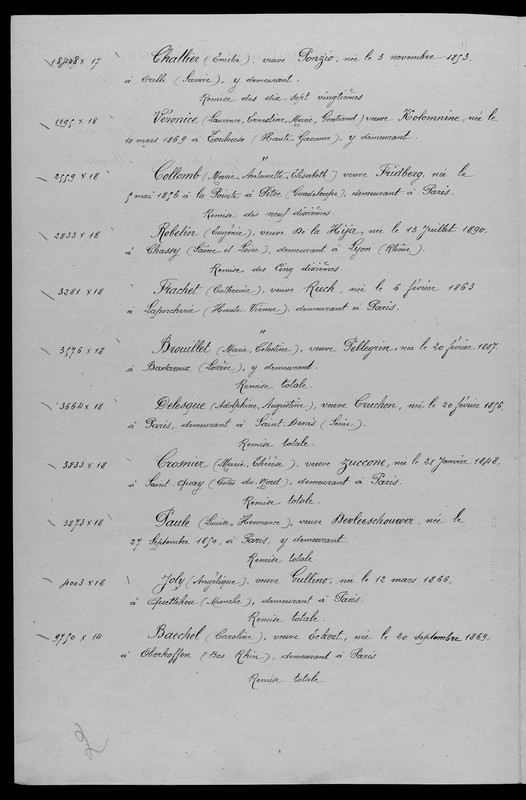 18448 x 17 Challier (Emilie), veuve Ponzio, née le 3 novembre 1853.
à Orelle (Savoie), y demeurant.
Remise des dix-sept vingtièmes
1995 x 18 Véronice (Laurence, Ernestine, Marie, Gontrand) veuve Kolomnine, née le
10 mars 1869 à Toulouse (Haute-Garonne), y demeurant.
"
2559 x 18 Collomb (Marie, Antoinette, Elisabeth) veuve Fridberg, née le
5 mai 1856 à la Pointe à Pitre (Guadeloupe), demeurant à Paris.
Remise des neuf dixièmes.
2833 x 18 Robelin (Eugénie), veuve De la Hija, née le 13 Juillet 1890.
à Chassy (Saône-et-Loire), demeurant à Lyon (Rhône).
Remise des Cinq dixièmes
3281 x 18 Frachet (Catherine), veuve Ruch, née le 6 février 1863
à Laporcherie (Haute Vienne), demeurant à Paris.
"
3576 x 18 Brouillet (Marie, Célestine), veuve Pellegrin, née le 20 février 1887.
à (Lozère), y demeurant.
Remise totale.
3664 x 18 Delesque (Adolphine, Augustine), veuve Cruchon, née le 20 février 1856
à Paris, demeurant à Saint-Denis (Seine).
Remise totale.
3833 x 18 Crosnier (Marie, Thérèse), veuve Zuccone, née le 21 Janvier 1848,
à Saint-Quay (Côtes du Nord), demeurant à Paris.
Remise totale.
3873 x 18 Paule (Louise, Hermance), veuve née le
27 Septembre 1850, à Paris, y demeurant
Remise totale.
4003 x 18 Joly (Angélique), veuve Gullino, née le 12 mars 1866,
à Quettehou (Manche), demeurant à Paris.
Remise totale.
9750 x 14 Baechel (Caroline), veuve Eckert, née le 20 septembre 1869,
à Oberhoffen (Bas Rhin), demeurant à Paris
Remise totale